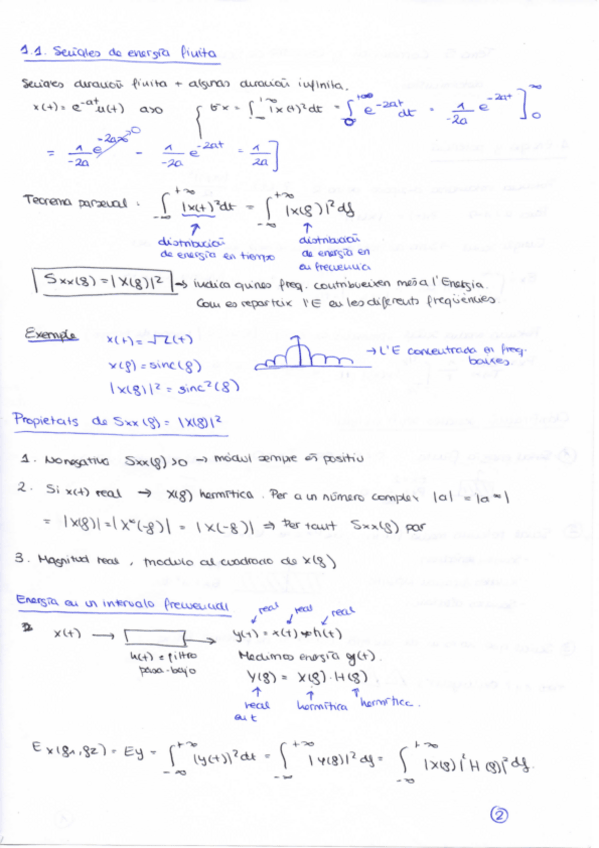 1.1. Señales de energía finita
Señales duración finita + algunas duración infinita.
x(t) = e^-at u(t) a>0 { σx = ∫_-∞^+∞ |x(t)|²dt = ∫_0^+∞ e^-2at dt = 1/-2a e^-2at ]_0^∞
= 1/-2a e^-2a∞ 0 - 1/-2a e^-2at = 1/2a ]
Teorema parseval : ∫_-∞^+∞ |x(t)|²dt = ∫_-∞^+∞ |X(f)|²df
distribución de energía en tiempo
distribución de energía en frecuencia
Sxx(f) = |X(f)|² → indica quines freq. contribueixen més a l'Energia.
Com es reparteix l'E en les diferents freqüències
Exemple x(t) = π(t)
x(f) = sinc(f) → L'E concentrada en freq. baixes.
|x(f)|² = sinc²(f)
Propietats de Sxx(f) = |X(f)|²
1. No negativa Sxx(f) >0 → mòdul sempre és positiu
2. Si x(t) real → X(f) hermítica. Per a un número complex |a| = |a*|
= |X(f)| = |X*(-f)| = |X(-f)| ⇒ Per tant Sxx(f) par
3. Magnitud real, modulo al cuadrado de X(f)
Energía en un intervalo frecuencial
real real real
x(t) → → y(t) = x(t) * h(t)
h(t) = filtro paso-bajo
Medimos energía y(t).
Y(f) = X(f) · H(f)
real en t hermítica hermítica.
Ex(f1,f2) = Ey = ∫_-∞^+∞ |y(t)|²dt = ∫_-∞^+∞ |Y(f)|²df = ∫_-∞^+∞ |X(f)|²|H(f)|²df.
2